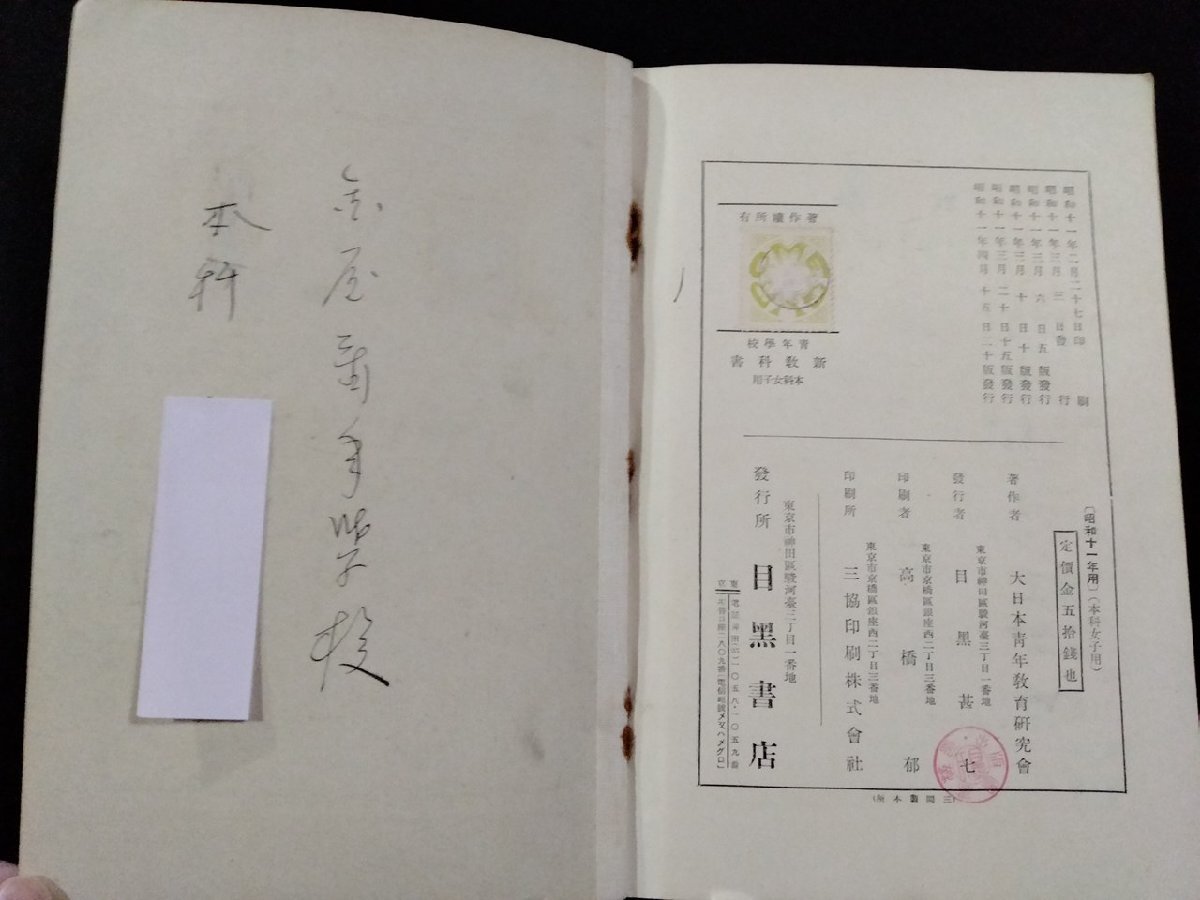 昭和十一年二月二十七日印刷
昭和十一年三月三日發行
昭和十一年三月六日五版發行
昭和十一年三月十日十版發行
昭和十一年三月二十日十五版發行
昭和十一年四月十五日二十版發行
著作權所有
青年學校
新教科書
本科女子用
〔昭和十一年用〕(本科女子用)
定價金五拾錢也
著作者 大日本青年教育研究會
東京市神田區駿河臺三丁目一番地
發行者 目黑甚七
東京市京橋區銀座西二丁目三番地
印刷者 高橋郁
東京市京橋區銀座西二丁目三番地
印刷所 三協印刷株式會社
東京市神田區駿河臺三丁目一番地
發行所 目黑書店
(三開製本所)
金屋青年学校
本科